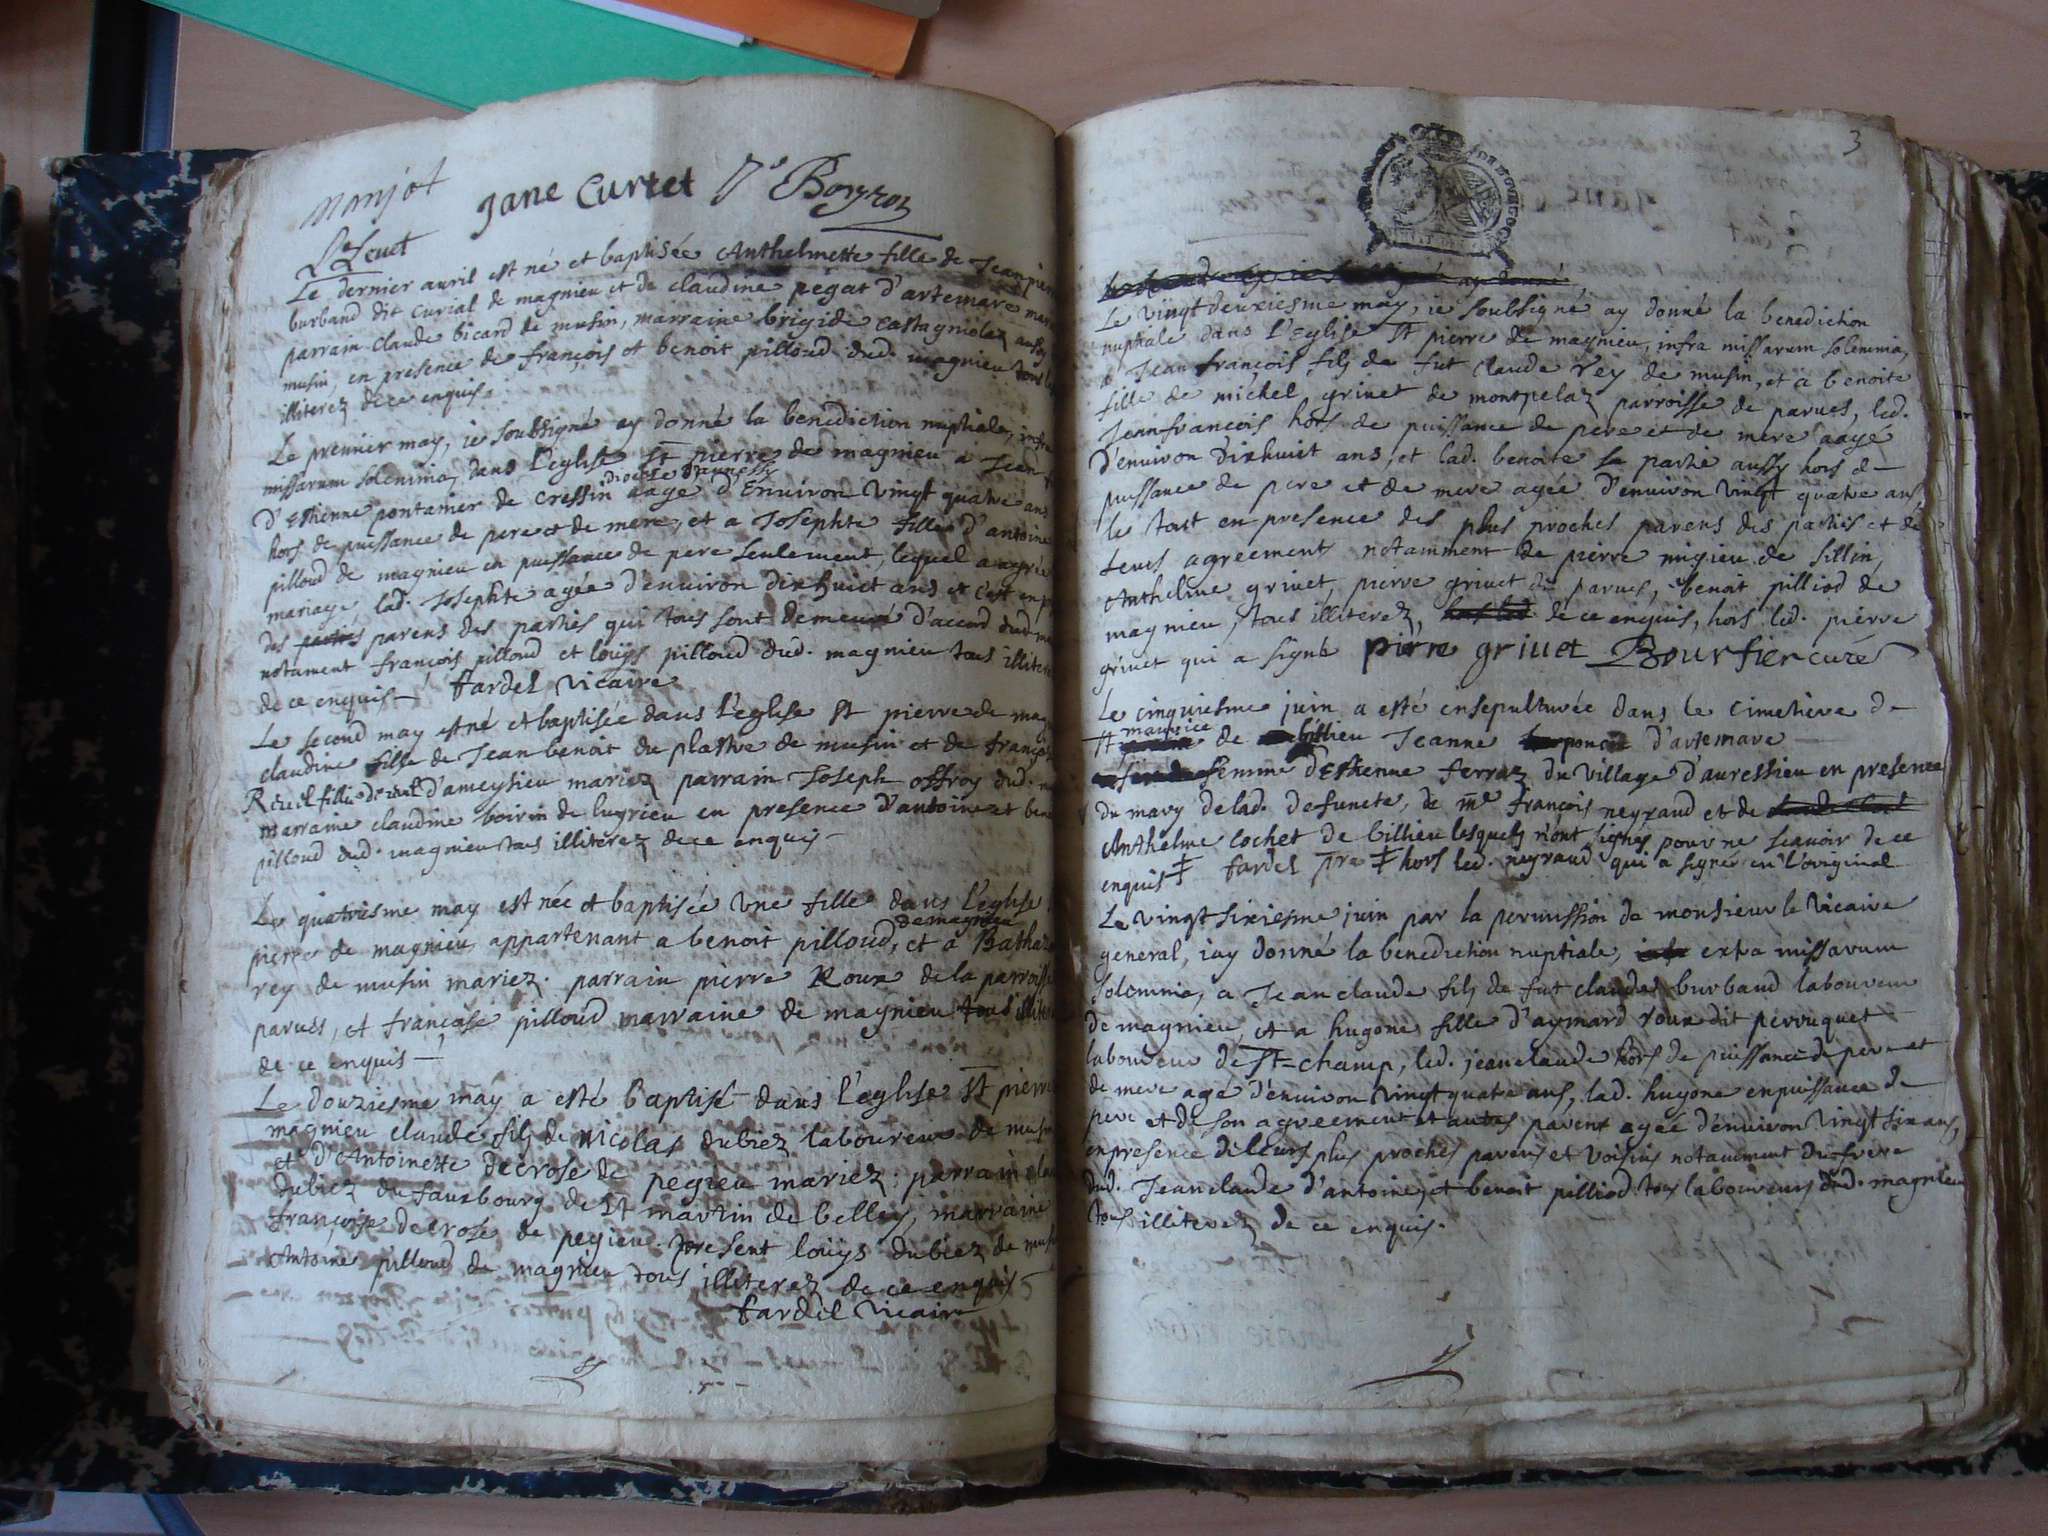 Manjot
Jane Curtet P. Boyron
L. Levet
Le dernier auril est né et baptisée Anthelmette fille de Jean pierre
burband dit curial de magnieu et de claudine pégat d'artemare
parrain claude bicard de musin, marraine brigide castagniolez aussy
musin, en presence de françois et benoit pilloud dud. magnieu tous
illiterez de ce enquis.
Le premier may, ie soubsigné ay donné la benediction nuptiale, infra
missarum solemnia, dans l'eglise St pierre de magnieu a Jean
diocese d'annessy
d'Estienne pontanier de cressin aagé d'Environ vingt quatre ans
hors de puissance de pere et de mere, et a Josephte fille d'antoine
pilloud de magnieu en puissance de pere seulement, lequel a agrée
mariage, lad. Josephte agée d'environ dixhuict ans et c'est en
des parties parens des parties qui tous sont demeuré d'accord dud.
notament françois pilloud et loüys pilloud dud. magnieu tous illiterez
de ce enquis fardel vicaire
Le second may est né et baptisée dans l'eglise St pierre de
claudine fille de Jean benoit du plastre de musin et de françoise
d'ameysieu mariez parrain Joseph offroy dud.
marraine claudine boirin de luyrieu en presence d'antoine et
pilloud dud. magnieu tous illiterez de ce enquis
Le quatriesme may est née et baptisée une fille dans l'eglise
de magnieu
pierre de magnieu appartenant a benoit pilloud, et a
rey de musin mariez. parrain pierre Roux de la parroisse
parues, et françoise pilloud marraine de magnieu tous
de ce enquis
Le douziesme may a esté baptisé dans l'eglise St pierre
magnieu claude filz de nicolas dubiez laboureur de
et d'Antoinette decrose de pegieu mariez, parrain
dubiez du fauxbourg de St martin de belley, marraine
françoise decrose de pegieu. present loüys dubiez de
Antoine pilloud de magnieu tous illiterez de ce enquis
fardel vicaire
3
ay donné
Le vingtdeuxiesme may, ie soubsigné ay donné la benediction
nuptiale dans l'Eglise St pierre de magnieu, infra missarum solemnia,
a Jean françois filz de fut Claude rey de musin, et a benoite
fille de michel griuet de montpelaz parroisse de parues, led.
Jeanfrançois hors de puissance de pere et de mere aagé
d'enuiron dixhuict ans, et lad. benoite sa partie aussy hors de
puissance de pere et de mere agée d'enuiron vingt quatre ans
le tout en presence des plus proches parens des parties et de
leurs agreement notamment de pierre migieu de sillin,
Anthelme griuet, pierre griuet de parues, benoit pilliod de
magnieu, tous illiterez, de ce enquis, hors led. pierre
griuet qui a signé pierre griuet Boursier curé
Le cinquiesme juin a esté ensepulturée dans le cimetiere de
maurice
St de billieu Jeanne ponçet d'artemare
femme d'Estienne ferraz du village d'auressieu en presence
du mary de lad. defuncte, de me françois neyraud et de
Anthelme Cochet de billieu lesquels n'ont signés pour ne scauoir de ce
enquis ‡ fardel pre ‡ hors led. neyraud qui a signé en l'original
Le vingt sixiesme juin par la permission de monsieur le vicaire
general, iay donné la benediction nuptiale, extra missarum
solemnia, a Jean claude filz de fut claude burband laboureur
de magnieu, et a hugone fille d'aymard roux dit perruquet
laboureur de St=champ, led. jeanclaude hors de puissance de pere et
de mere agé d'enuiron vingt quatre ans, lad. hugone en puissance de
pere et de son agreement et autres parent agée d'enuiron vingt six ans,
en presence de leurs plus proches parens et voisins notamment du frere
dud. Jeanclaude d'antoine, et benoit pilliod tous laboureurs dud. magnieu
tous illiterez de ce enquis.